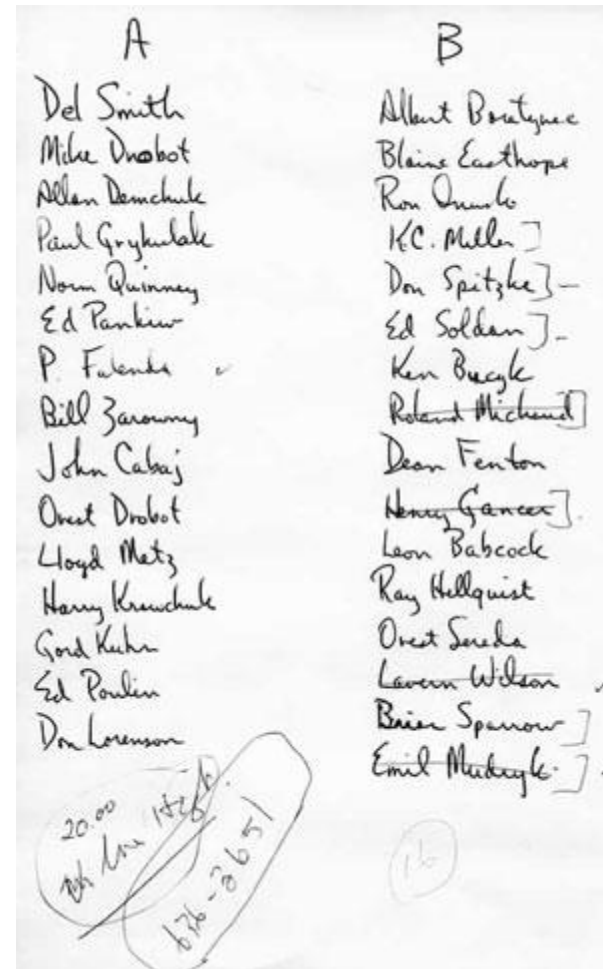 A
Del Smith
Mike Drobot
Allan Demchuk
Paul Grykulak
Norm Quinney
Ed Pankiw
P. Falenda
Bill Zarowny
John Cabaj
Orest Drobot
Lloyd Metz
Harry Krawchuk
Gord Kuhn
Ed Poulin
Don Lorenson
20.00
636-3651
B
Albert
Blaine Easthope
Ron
K.C. Miller ]
Don Spitzke ] -
Ed Soldan ] -
Ken Bucyk
Roland Michaud ]
Dean Fenton
Henry Gancer ]
Leon Babcock
Ray Hellquist
Orest Sereda
Lavern Wilson
Brian Sparrow ]
Emil Mudryk ]
16